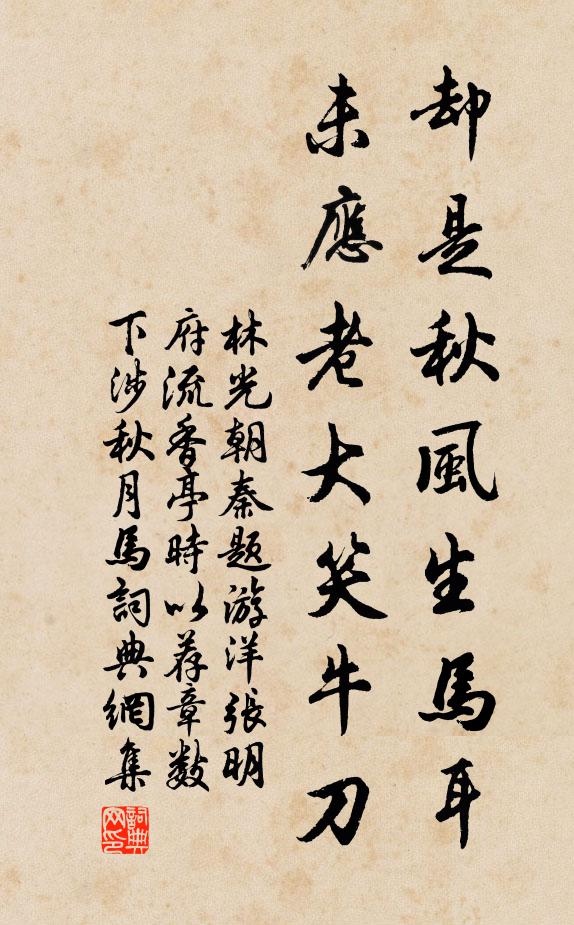 却是秋風生馬耳
未應老大笑牛刀
林光朝奏題游洋張明
府流香亭時以荐章數
下涉秋月馬詞典網集
詞典网印